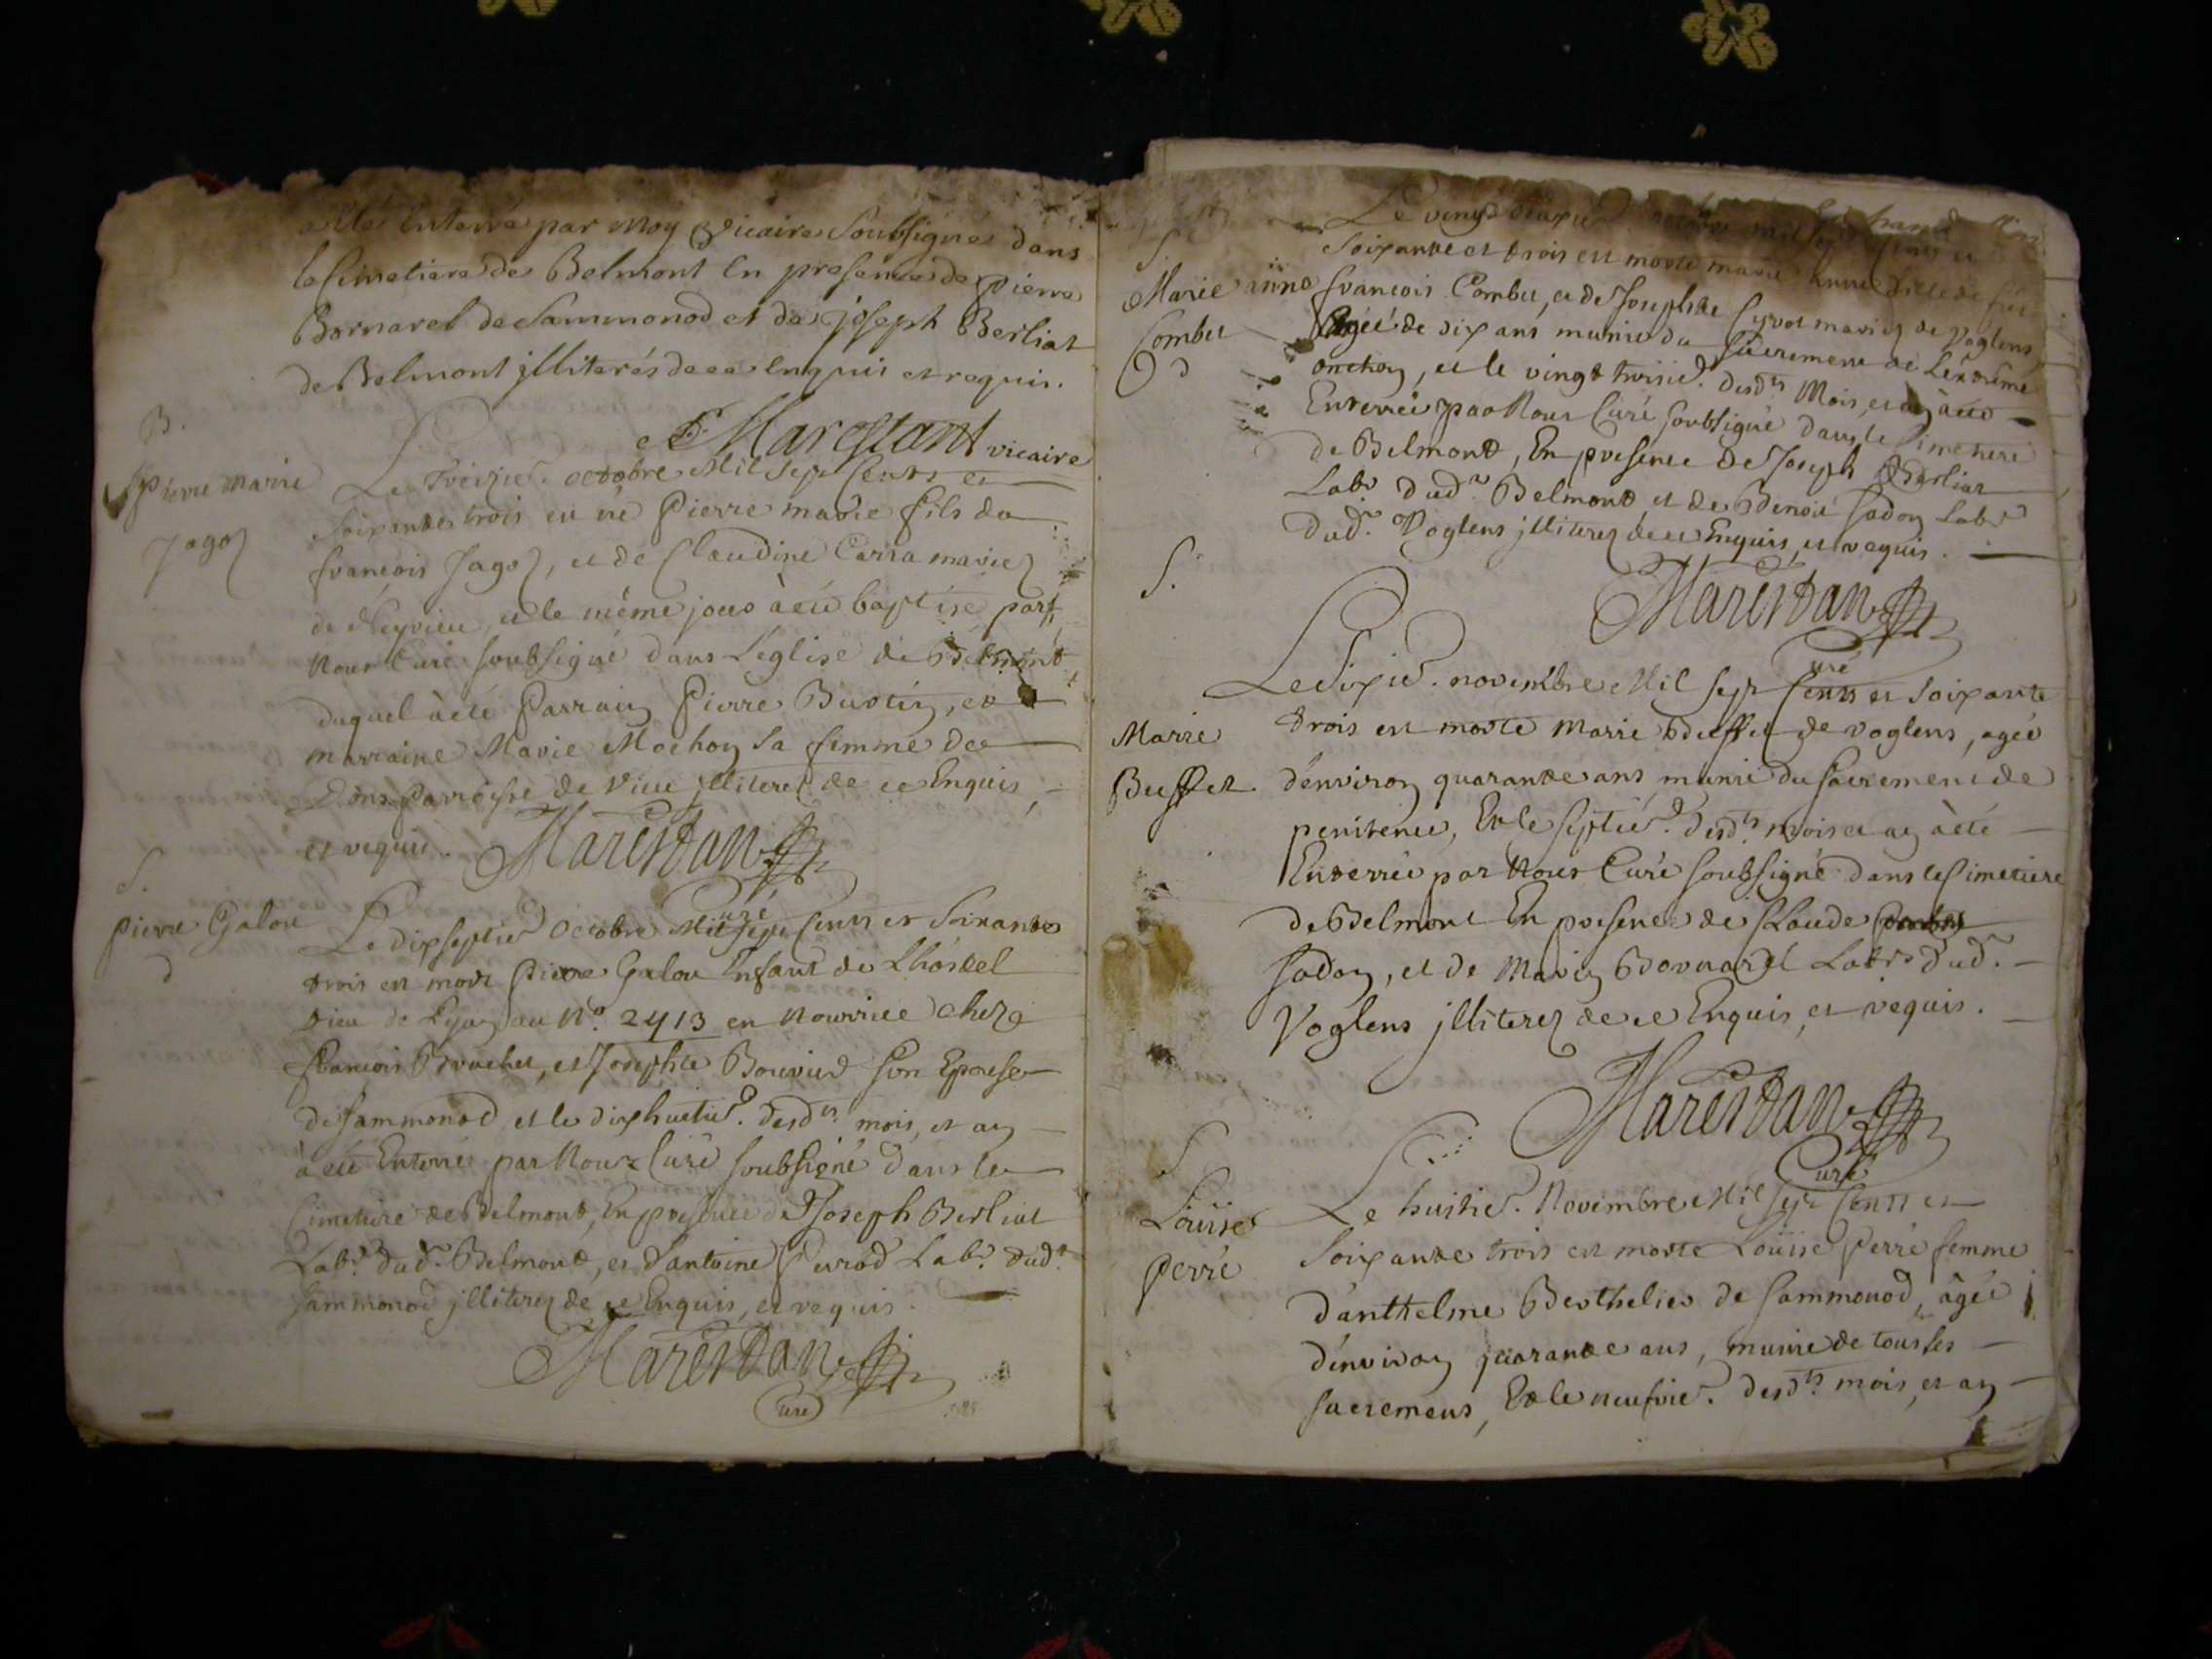 a été Enterré par moy vicaire Soubsigné dans
le Cimetiere de Belmont En presence de pierre
Bornarel de Sammonod et de joseph Berliat
de Belmont jlliterés de ce Enquis et requis.
Marestant vicaire
B.
Pierre marie
Jagoz
Le treizie. octobre Mil Sept Cents et
Soixante trois est né Pierre marie fils de
françois Jagoz, et de Claudine Carra mariez
de Neyrieu, et le même jour à été baptisé par
Nous Curé soubsigné dans L'eglise de Belmont
duquel à été Parrain Pierre Burtin, et
marraine Marie Mochon sa femme de
Dons Parroisse de Vieu jlliterez de ce Enquis,
et requis. Marestan
Curé
S.
pierre Galou
d
Le dixseptie. Octobre Mil Sept Cents et Soixante
trois est mort Pierre Galou Enfant de Lhôstel
Dieu de Lyon au No. 2413 en Nourrice chez
françois Brachet, et Josephte Bouvier son Epouse
de Sammonod et le dixhuitie. desdts mois, et an
à été Enterré par Nous Curé soubsigné dans le
Cimetiere de Belmont, En presence de Joseph Berliat
Labr. dudt. Belmont, et d'antoine Labr. dudt.
Sammonod jlliterez de ce Enquis, et requis.
Marestan
Curé
S.
Marie anne
Combet
d
Le vingt octobre mil sept Cents et
Soixante et trois est morte marie anne fille de
françois Combet, et de Josephte mariez de Voglens,
Agée de six ans munie du sacrement de L'extrême
onction, et le vingt troisie. desdts Mois, et an à été
Enterrée par Nous Curé soubsigné dans le Cimetiere
de Belmont, En presence de Joseph Berliat
Labr. dudt. Belmont, et de Benoit Sadon Labr.
dudt. Voglens jlliterez de ce Enquis, et requis.
Marestan
Curé
S.
Marie
Buffet
Le Sixie. novembre Mil sept Cents et soixante
trois est morte Marie Buffet de voglens, agée
d'environ quarante ans munie du sacrement de
penitence, Et le septie. desdts mois et an à été
Enterrée par Nous Curé soubsigné dans le Cimetiere
de Belmont En presence de Claude
Sadon, et de Marin Bornarel Labrs dudt.
Voglens jlliterez de ce Enquis, et requis.
Marestan
Curé
S
Loüise
Perré
Le huitie. Novembre Mil Sept Cents et
Soixante trois est morte Loüise Perré femme
d'anthelme Berthelier de Sammonod, âgée
d'environ quarante ans, munie de tous ses
sacremens, Et le neufvie. desdts mois, et an